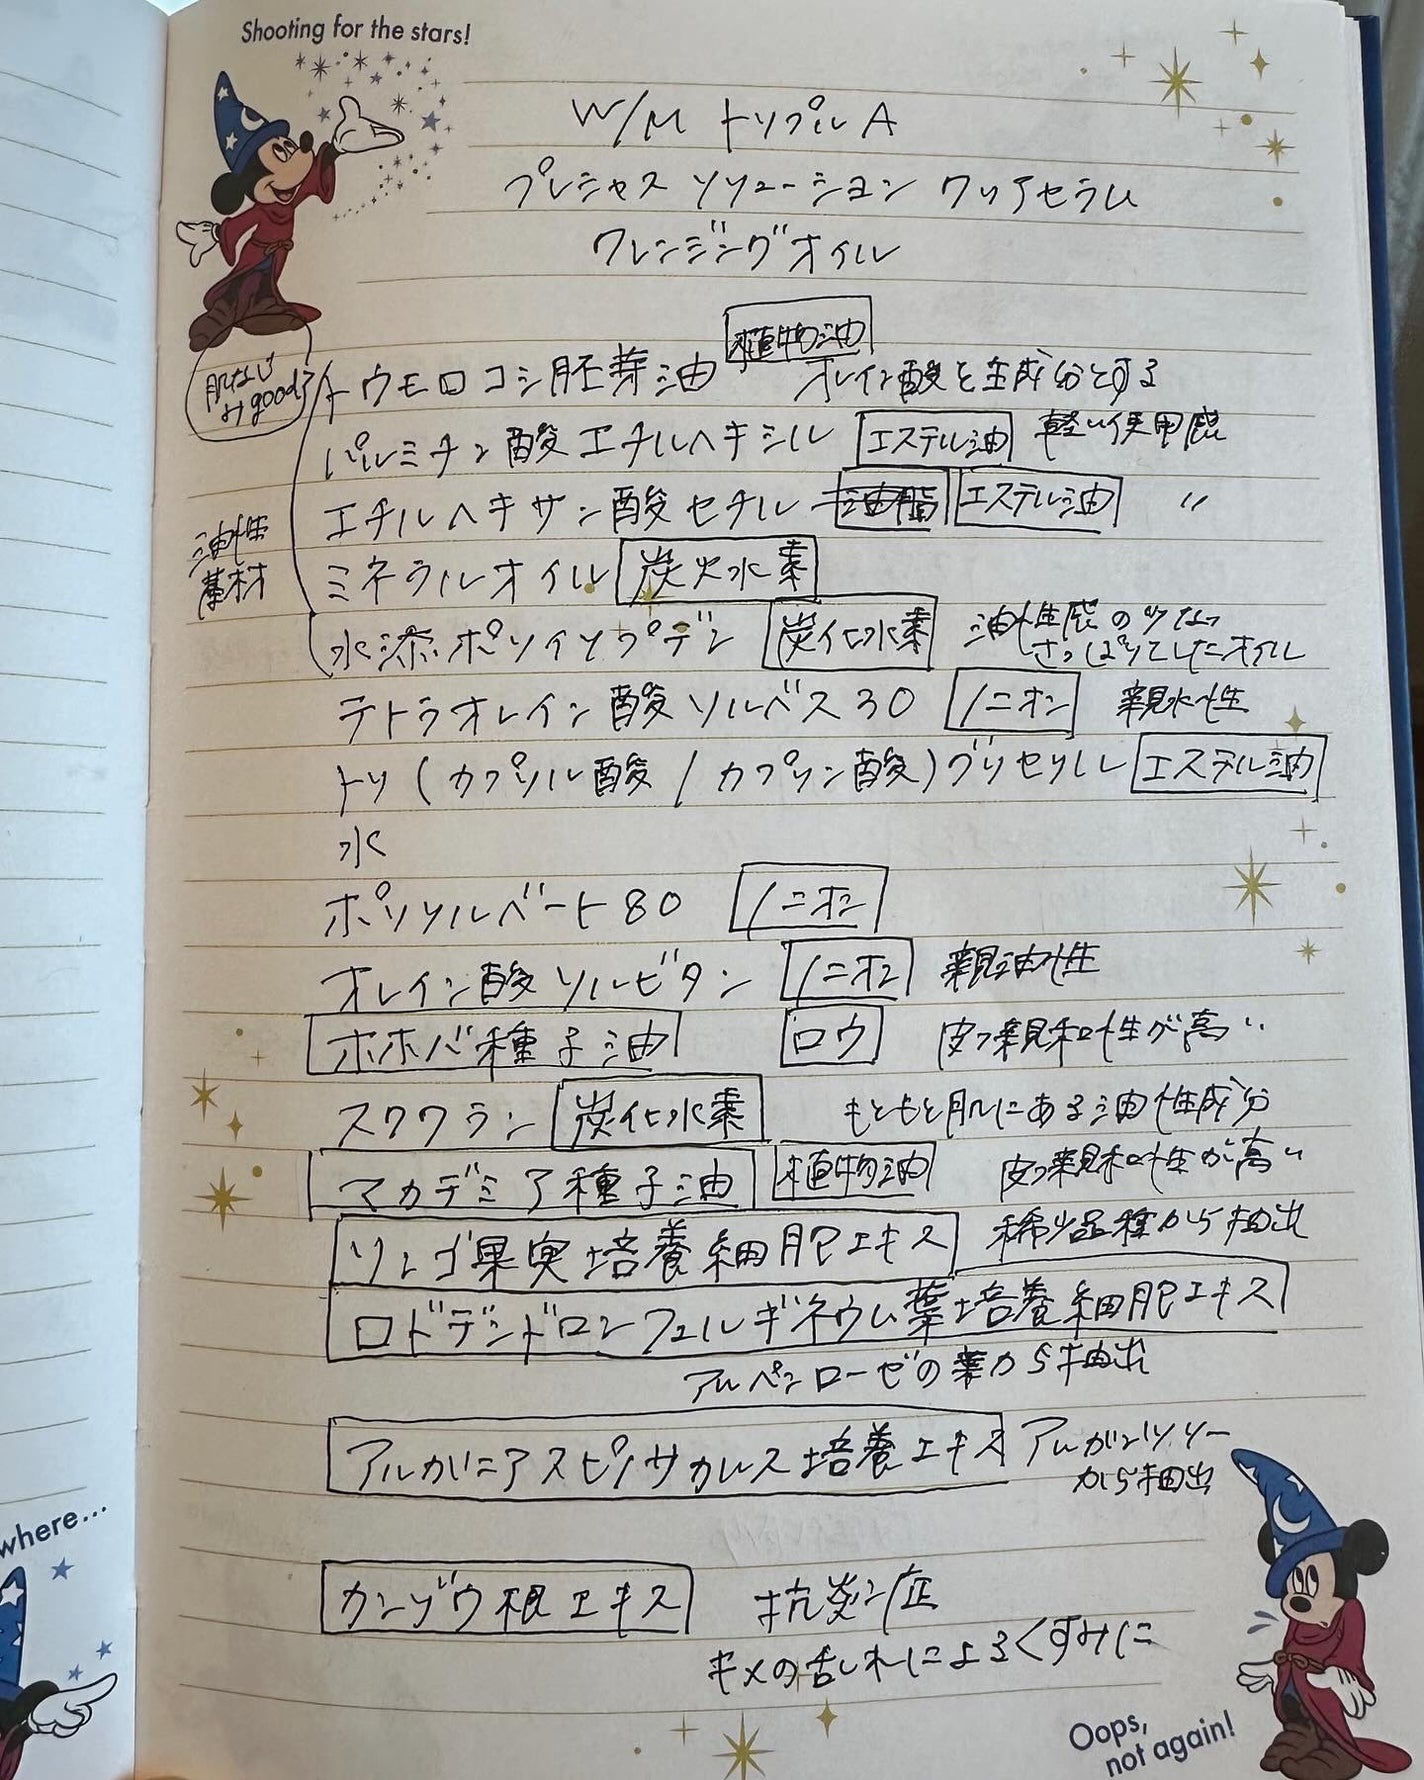 Shooting for the stars!
W/M トリプルA
プレシャス ソリューション クリアセラム
クレンジングオイル
植物油
肌なじみgood?
トウモロコシ胚芽油 オレイン酸を主成分とする
パルミチン酸エチルヘキシル エステル油 軽い使用感
エチルヘキサン酸セチル 油脂 エステル油 〃
油性基材
ミネラルオイル 炭火水素
水添ポリイソブデン 炭化水素 油性感の少ないさっぱりとしたオイル
テトラオレイン酸ソルベス30 ノニオン 親水性
トリ(カプリル酸/カプリン酸)グリセリル エステル油
水
ポリソルベート80 ノニオン
オレイン酸ソルビタン ノニオン 親油性
ホホバ種子油 ロウ 皮フ親和性が高い
スクワラン 炭化水素 もともと肌にある油性成分
マカデミア種子油 植物油 皮フ親和性が高い
リンゴ果実培養細胞エキス 稀少品種から抽出
ロドデンドロンフェルギネウム葉培養細胞エキス
アルペンローゼの葉から抽出
アルガニアスピノサカルス培養エキス アルガンツリーから抽出
カンゾウ根エキス 抗炎症
キメの乱れによるくすみに
where...
Oops,
not again!